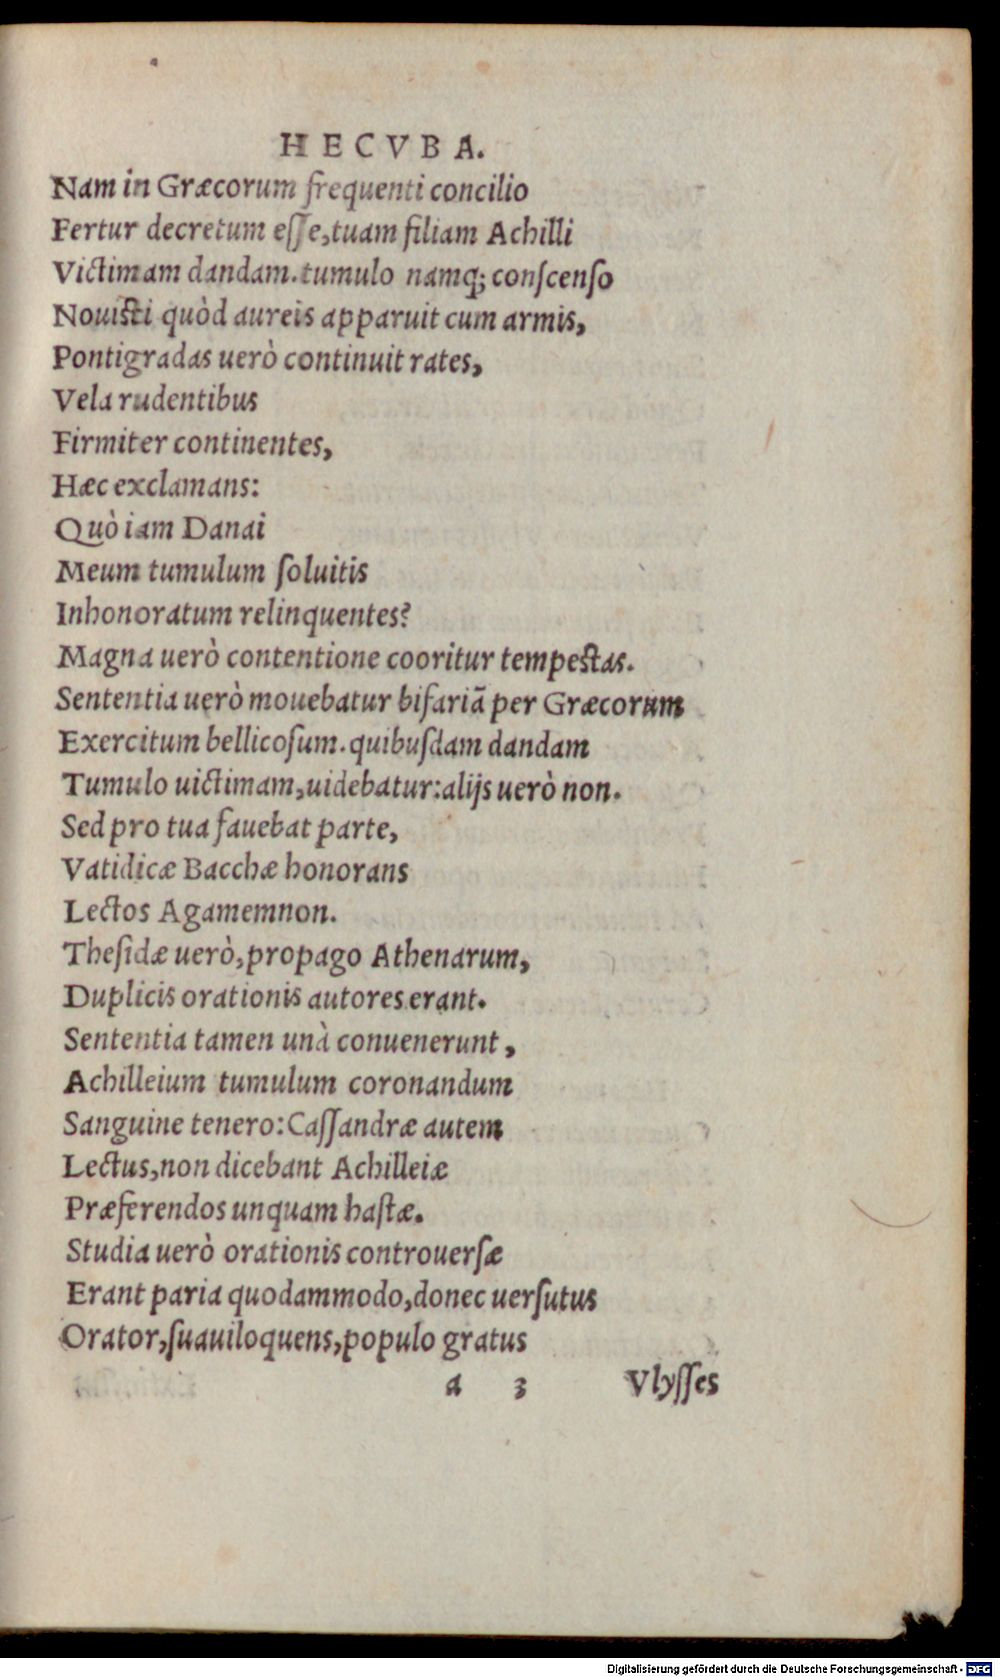 HECVBA.
Nam in Græcorum frequenti concilio
Fertur decretum eſſe, tuam filiam Achilli
Victimam dandam. tumulo namq; conſcenſo
Nouisti quòd aureis apparuit cum armis,
Pontigradas uerò continuit rates,
Vela rudentibus
Firmiter continentes,
Hæc exclamans:
Quò iam Danai
Meum tumulum ſoluitis
Inhonoratum relinquentes?
Magna uerò contentione cooritur tempestas.
Sententia uerò mouebatur bifariā per Græcorum
Exercitum bellicoſum. quibuſdam dandam
Tumulo uictimam, uidebatur: alijs uerò non.
Sed pro tua fauebat parte,
Vatidicæ Bacchæ honorans
Lectos Agamemnon.
Theſidæ uerò, propago Athenarum,
Duplicis orationis autores erant.
Sententia tamen unà conuenerunt,
Achilleium tumulum coronandum
Sanguine tenero: Caſſandræ autem
Lectus, non dicebant Achilleiæ
Præferendos unquam haſtæ.
Studia uerò orationis controuerſæ
Erant paria quodammodo, donec uerſutus
Orator, ſuauiloquens, populo gratus
a 3 Vlyſſes
Digitalisierung gefördert durch die Deutsche Forschungsgemeinschaft - DFG